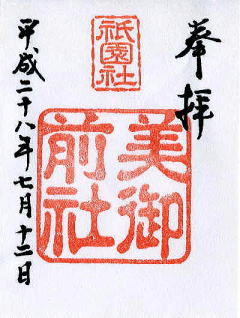 奉拝
祇園社
美御
前社
平成二十八年七月十二日